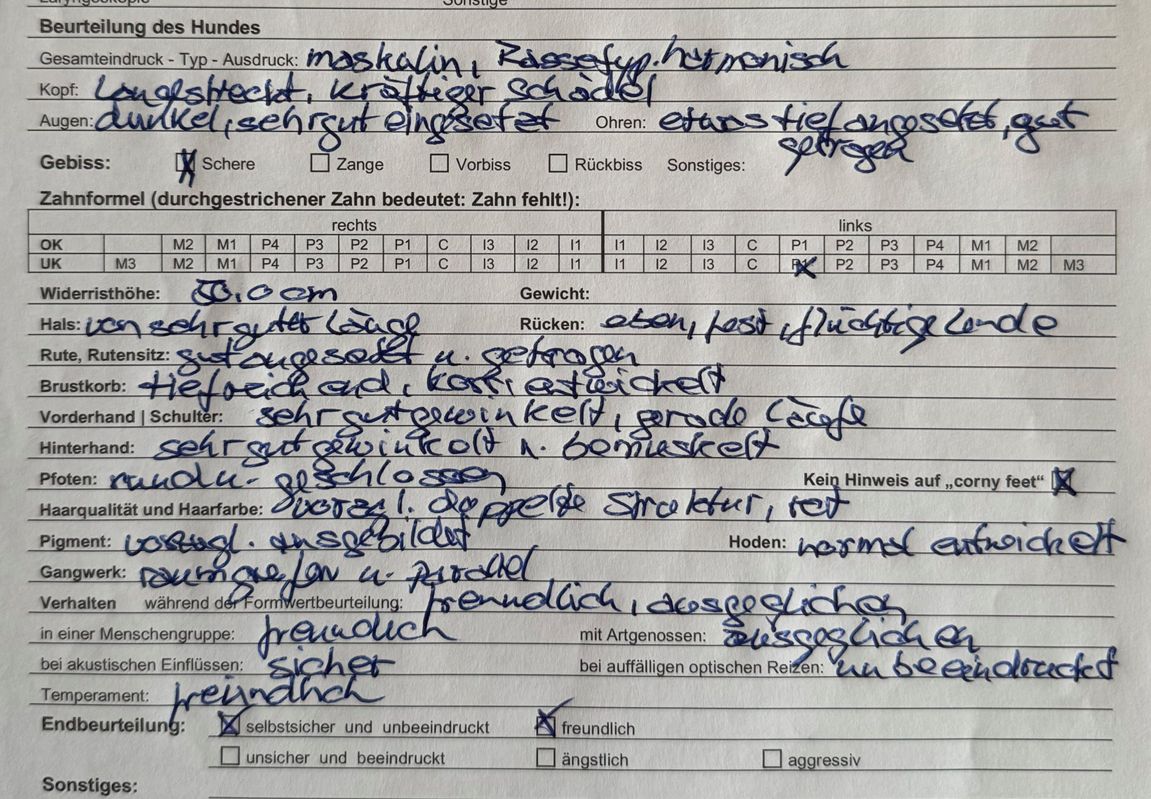 Laryngoskopie Sonstige
Beurteilung des Hundes
Gesamteindruck - Typ - Ausdruck: maskulin, Rassetyp. harmonisch
Kopf: Langestreckt, kräftiger Schädel
Augen: dunkel, sehr gut eingesetzt Ohren: etwas tief angesetzt, gut
getragen
Gebiss: Schere Zange Vorbiss Rückbiss Sonstiges:
Zahnformel (durchgestrichener Zahn bedeutet: Zahn fehlt!):
rechts links
OK M2 M1 P4 P3 P2 P1 C I3 I2 I1 I1 I2 I3 C P1 P2 P3 P4 M1 M2
UK M3 M2 M1 P4 P3 P2 P1 C I3 I2 I1 I1 I2 I3 C P1 P2 P3 P4 M1 M2 M3
Widerristhöhe: 50,0 cm Gewicht:
Hals: von sehr guter Länge Rücken: eben, fest, flüchtige Lende
Rute, Rutensitz: gut angesetzt u. getragen
Brustkorb: tiefreichend, korr. entwickelt
Vorderhand | Schulter: sehr gut gewinkelt, gerade Läufe
Hinterhand: sehr gut gewinkelt u. bemuskelt
Pfoten: rund u. geschlossen Kein Hinweis auf „corny feet“
Haarqualität und Haarfarbe: vorzgl. doppelte Struktur, rot
Pigment: vorzügl. ausgebildet Hoden: normal entwickelt
Gangwerk: raumgreifen u. parallel
Verhalten während der Formwertbeurteilung: freundlich, ausgeglichen
in einer Menschengruppe: freundlich mit Artgenossen: ausgeglichen
bei akustischen Einflüssen: sicher bei auffälligen optischen Reizen: unbeeindruckt
Temperament: freundlich
Endbeurteilung: selbstsicher und unbeeindruckt freundlich
unsicher und beeindruckt ängstlich aggressiv
Sonstiges: